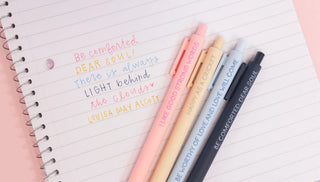 Be comforted
DEAR SOUL!
There is always
LIGHT behind
the clouds
LOUISA MAY ALCOTT
I LIKE GOOD STRONG WORDS
HAPPY AS A CRICKET
BE WORTHY OF LOVE AND LOVE WILL COME
BE COMFORTED, DEAR SOUL